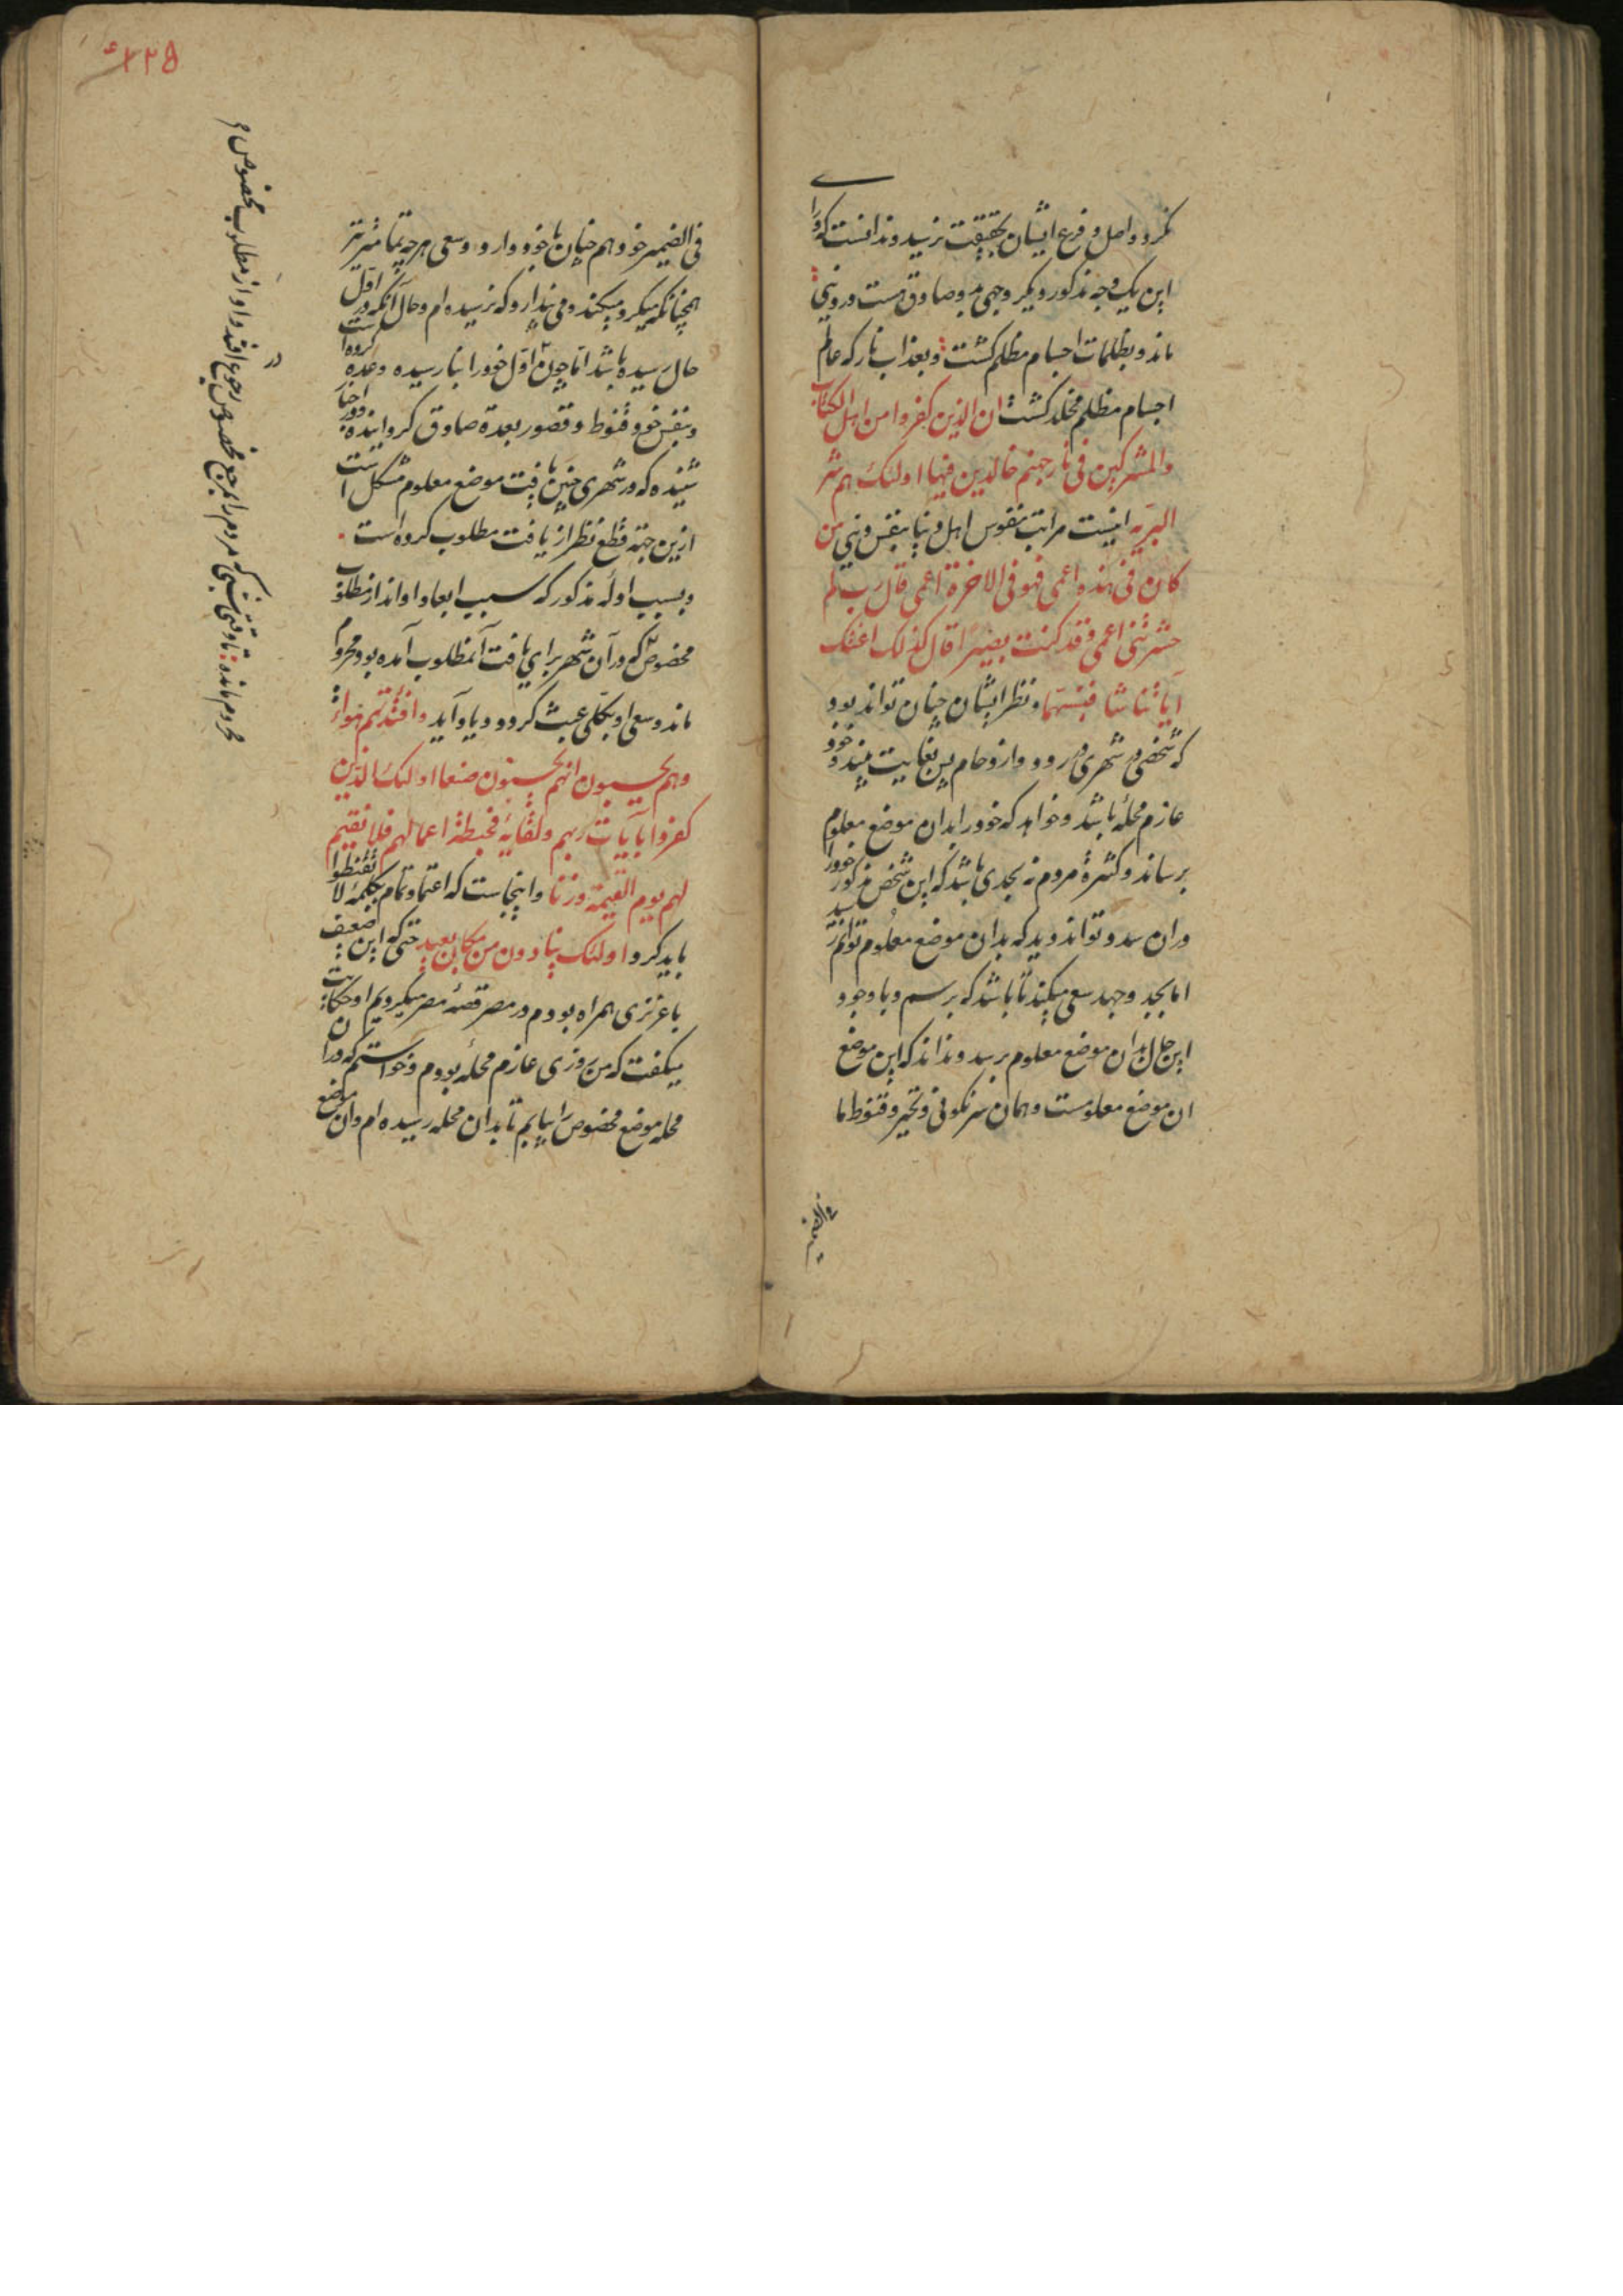 نکرد و اصل و فرع ایشان بحقیقت نرسید و ندانست که او را
این یک وجه مذکور و دیگر وجهی بدو صادق هست در دنیی
ماند و بظلمات اجسام مظلم کشت و بعذاب نار که عالم
اجسام مظلم مخلد کشت ان الذین کفروا من اهل الکتاب
والمشرکین فی نار جهنم خالدین فیها اولئک هم شر
البریه اینست مراتب نفوس اهل دنیا بنفس دنیی من
کان فی هذه اعمی فهو فی الاخرة اعمی قال رب لم
حشرتنی اعمی و قد کنت بصیرا قال کذلک اتتک
آیاتنا فنسیتها نظر ایشان چنان تواند بود
که شخصی در شهری رود و ازدحام بس بغایت بیند و خود
عازم محله باشد و خواهد که خود را بدان موضع معلوم
برساند و کثرة مردم نه بحدی باشد که این شخص مذکور خود را
دران سد و تواند دید که بدان موضع معلوم توانم رسید
اما بجد و جهد سعی میکند تا باشد که برسم و با وجود
این حال بدان موضع معلوم برسد و نداند که این موضع
ان موضع معلومست و همان سرنکونی و تحیر و قنوط ما
فی الضمیر
۴۲۵
فی الضمیر خود هم چنان با خود دارد و سعی هر چه تمامتر
همچنانکه میکرد میکند و می پندارد که نرسیده ام و حال آنکه در اول
حال رسیده باشد اما چون اول خود را نارسیده وعده کرده است
و بنفس خود قنوط و قصور بعدة صادق کردانیده و اخبار
شنیده که در شهری چنین یافت موضع معلوم مشکل است
ازین جهة قطع نظر از یافت مطلوب کرده است
و بسبب اوله مذکور که سبب ابعاد او اند از مطلوب
مخصوص که در آن شهر برای یافت آنمطلوب آمده بود محروم
ماند و سعی او بکلی عبث کردد و یاد آید وافئدتهم هواء
وهم یحسبون انهم یحسنون صنعا اولئک الذین
کفروا بآیات ربهم ولقائه فحبطت اعمالهم فلا نقیم
لهم یوم القیمة وزنا و اینجاست که اعتماد تمام بکلمهٔ لا تقنطوا
باید کرد اولئک ینادون من مکان بعید حتی که این ضعیف
با عزیزی همراه بودم در مصر قصهٔ مصر میکردیم او حکایت
میکفت که من روزی عازم محلهٔ بودم و خواستم که دران
محله موضع مخصوص را بیابم تا بدان محله رسیده ام و ان موضع